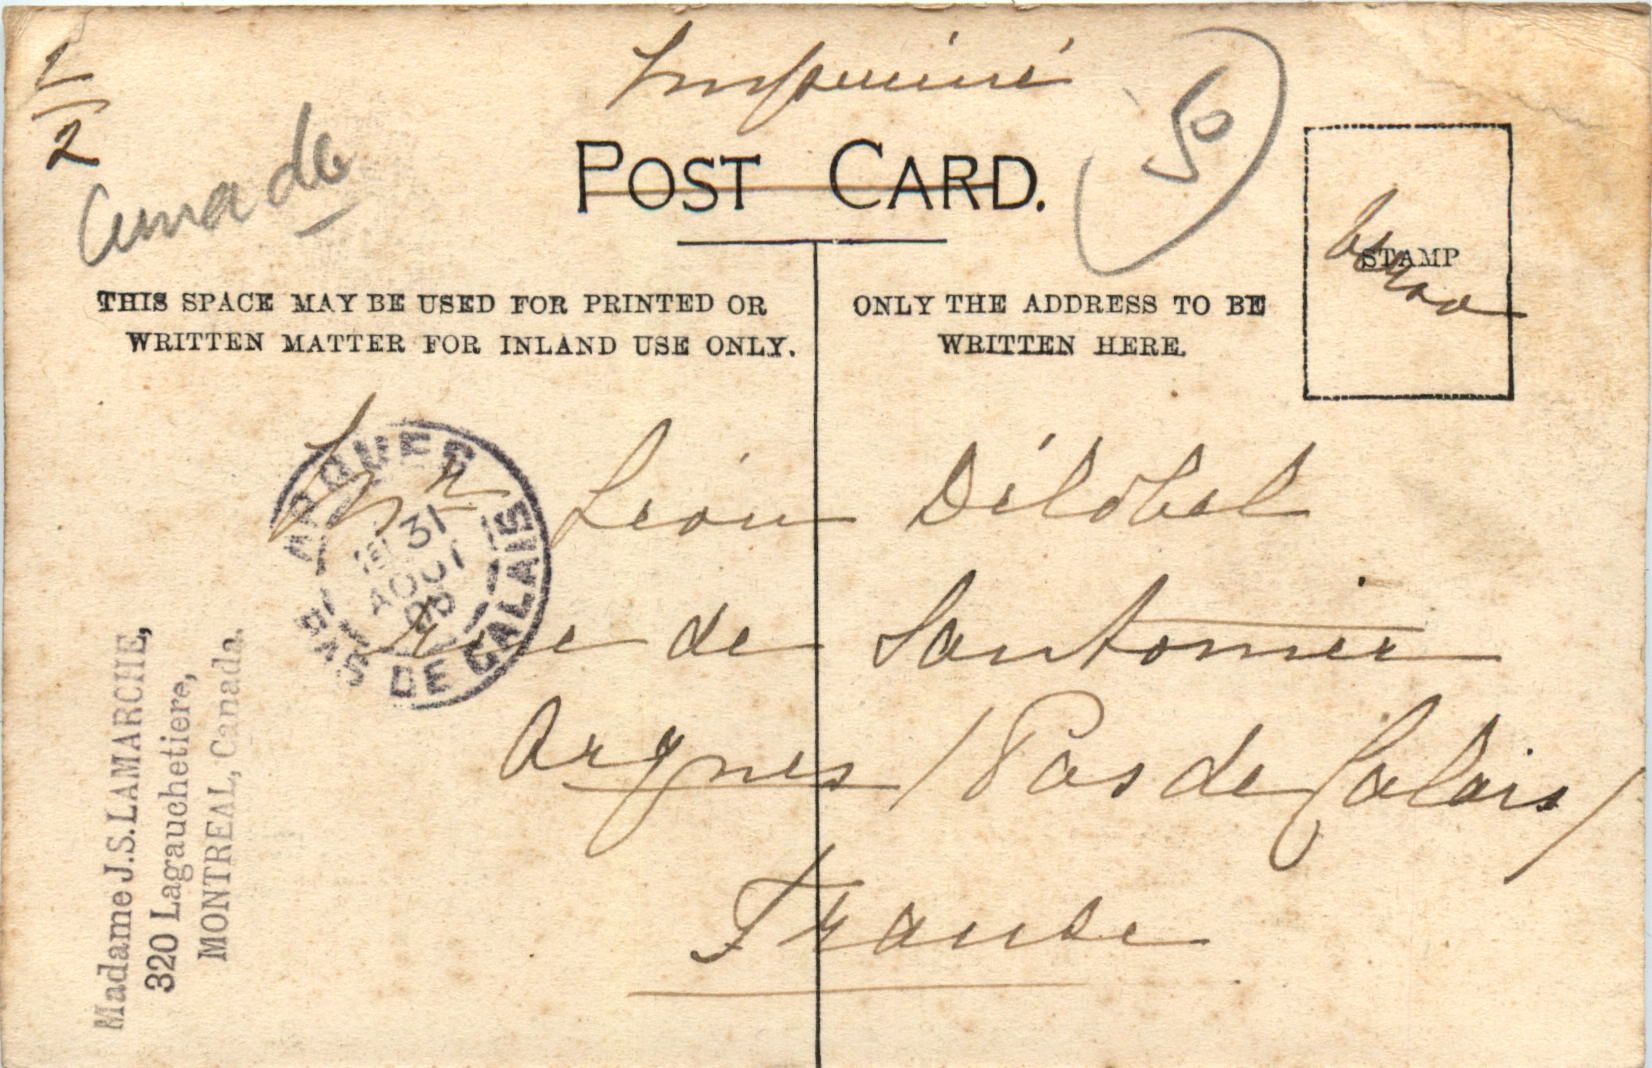 1/2
Imprimé
50
Canada
POST CARD.
STAMP
verso
THIS SPACE MAY BE USED FOR PRINTED OR
WRITTEN MATTER FOR INLAND USE ONLY.
ONLY THE ADDRESS TO BE
WRITTEN HERE.
Mr Léon Délobel
rue de Santomer
Arques (Pas de Calais)
France
ARQUES
31
AOUT
PAS DE CALAIS
Madame J.S. LAMARCHE,
320 Lagauchetiere,
MONTREAL, Canada.